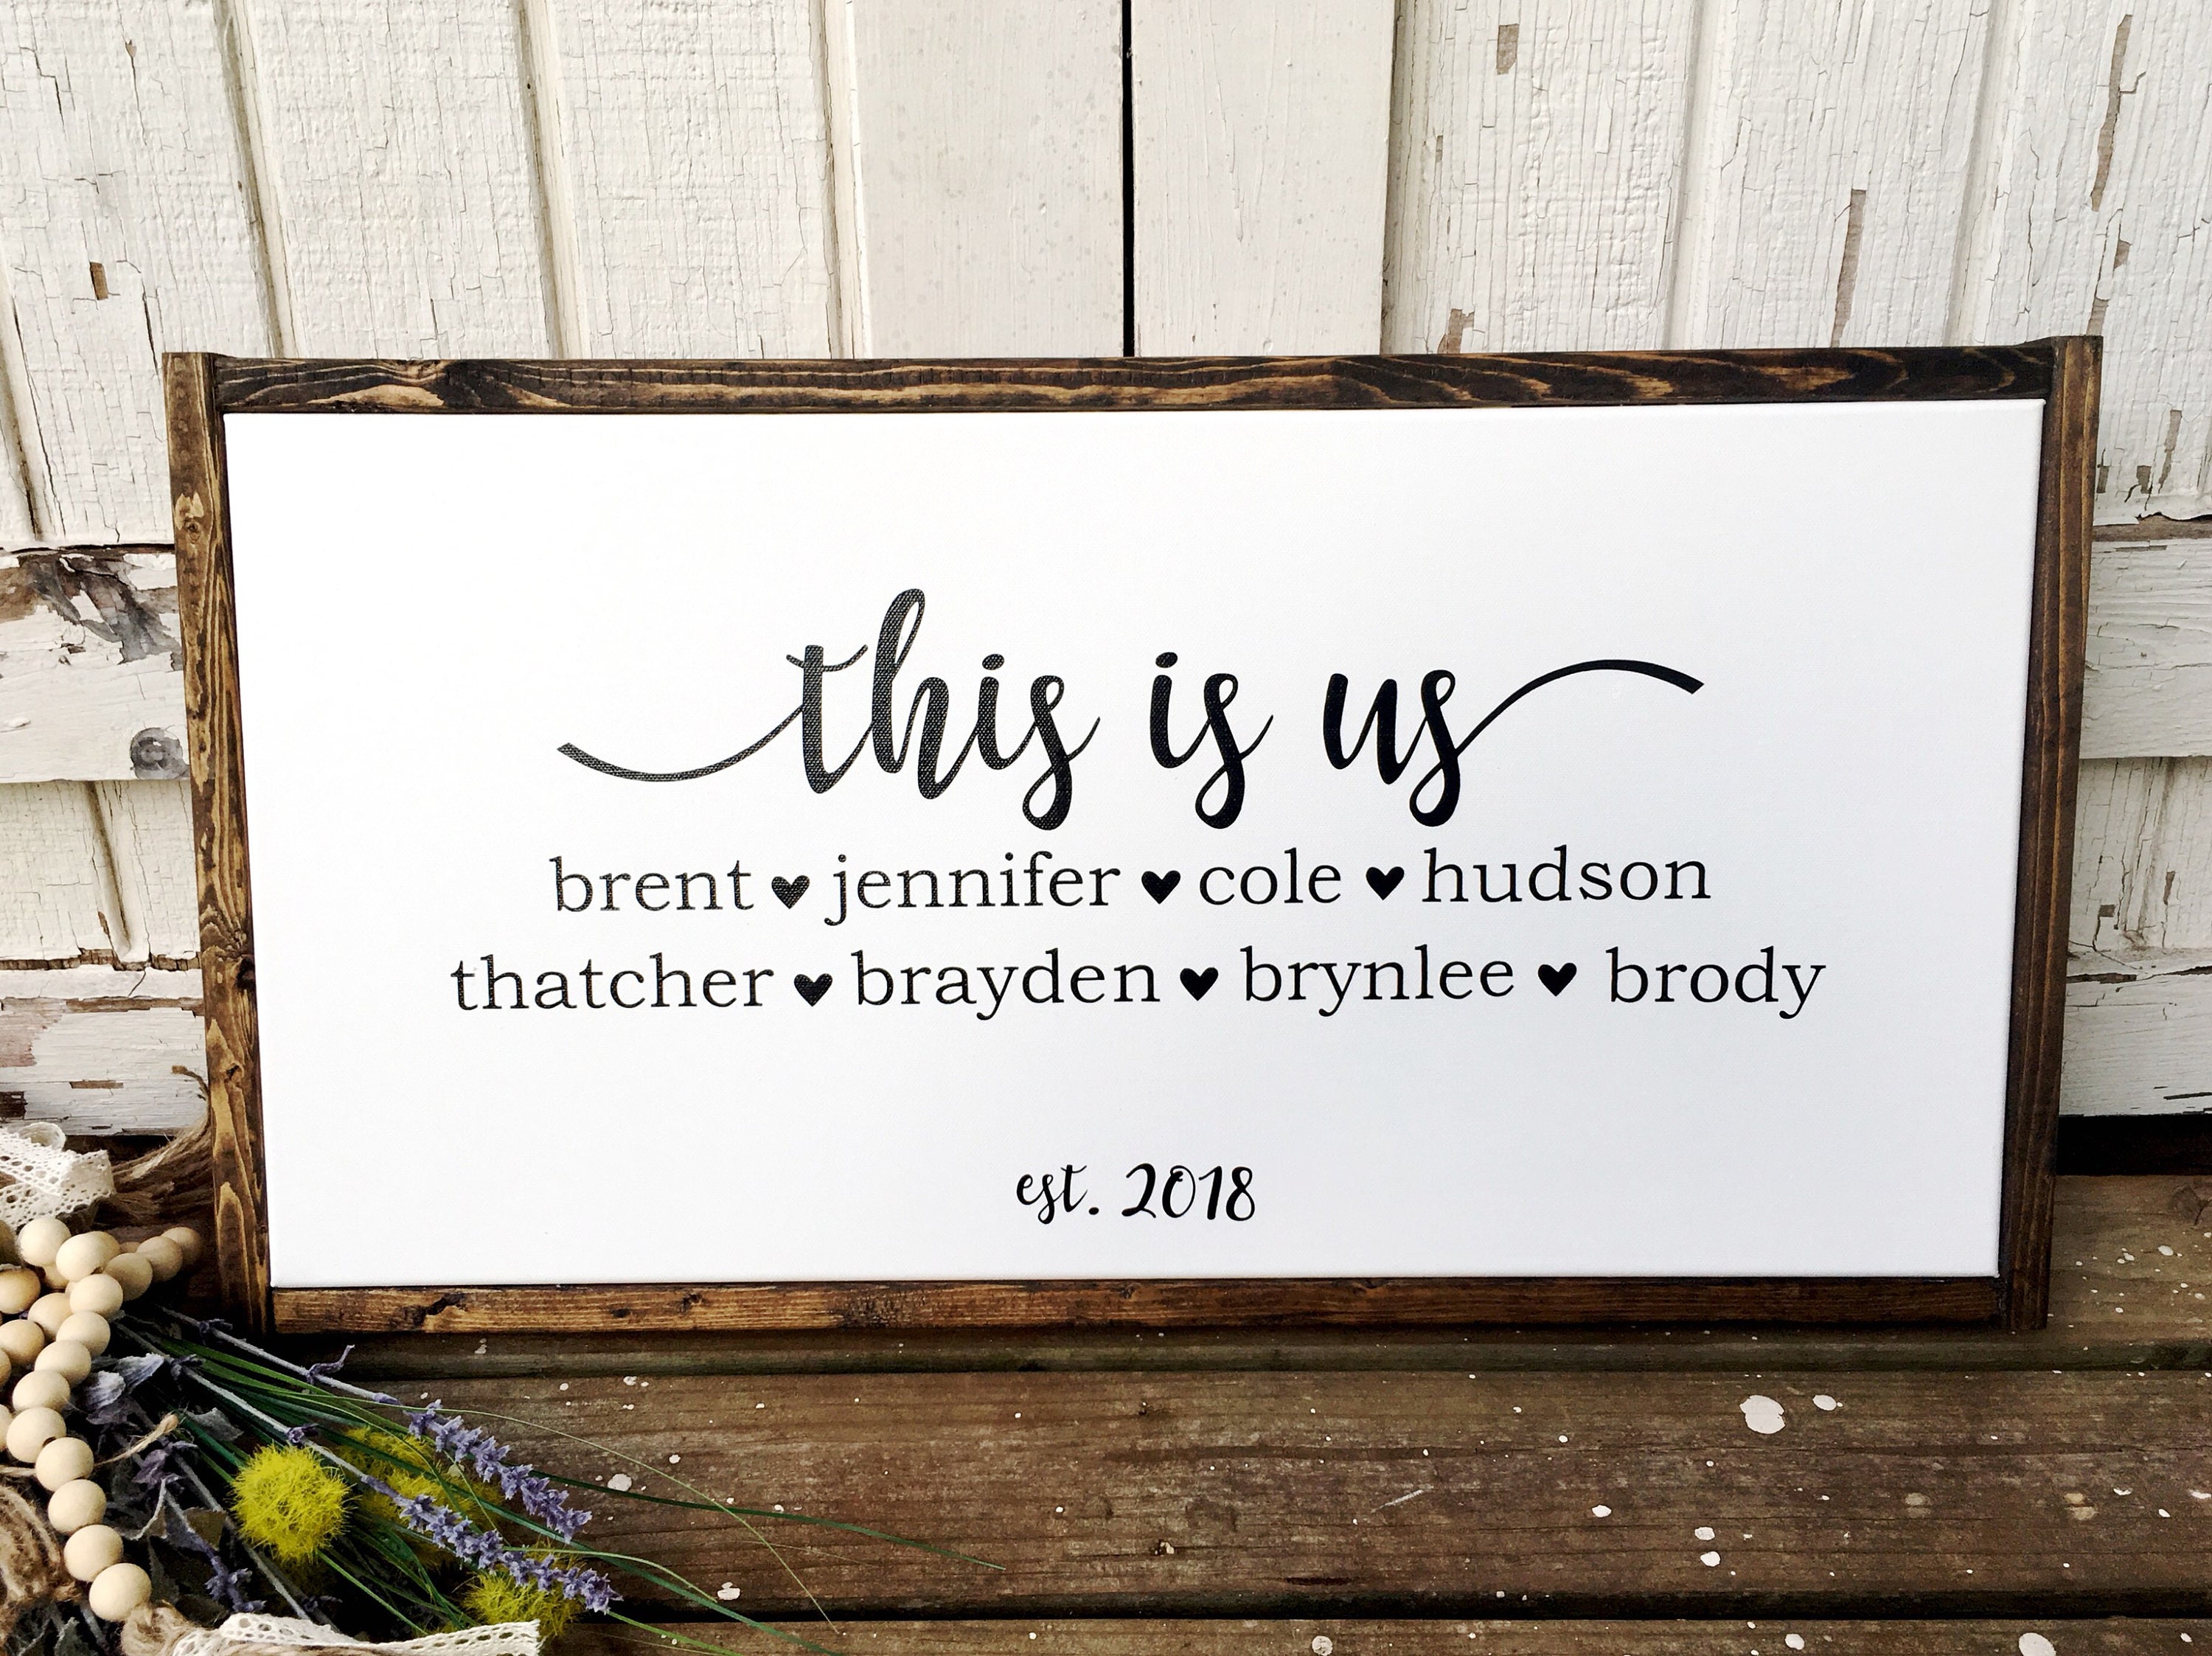 this is us
brent ♥ jennifer ♥ cole ♥ hudson
thatcher ♥ brayden ♥ brynlee ♥ brody
est. 2018